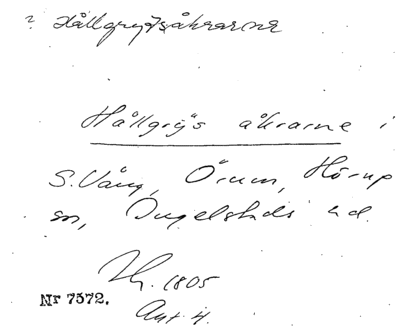 ? Hållgrydsåkrarne
Hållgrys åkrarne i
S. Vång, Örum, Hörup
sn, Ingelstads hd.
Th. 1805
Akt 4.
Nr 7372.